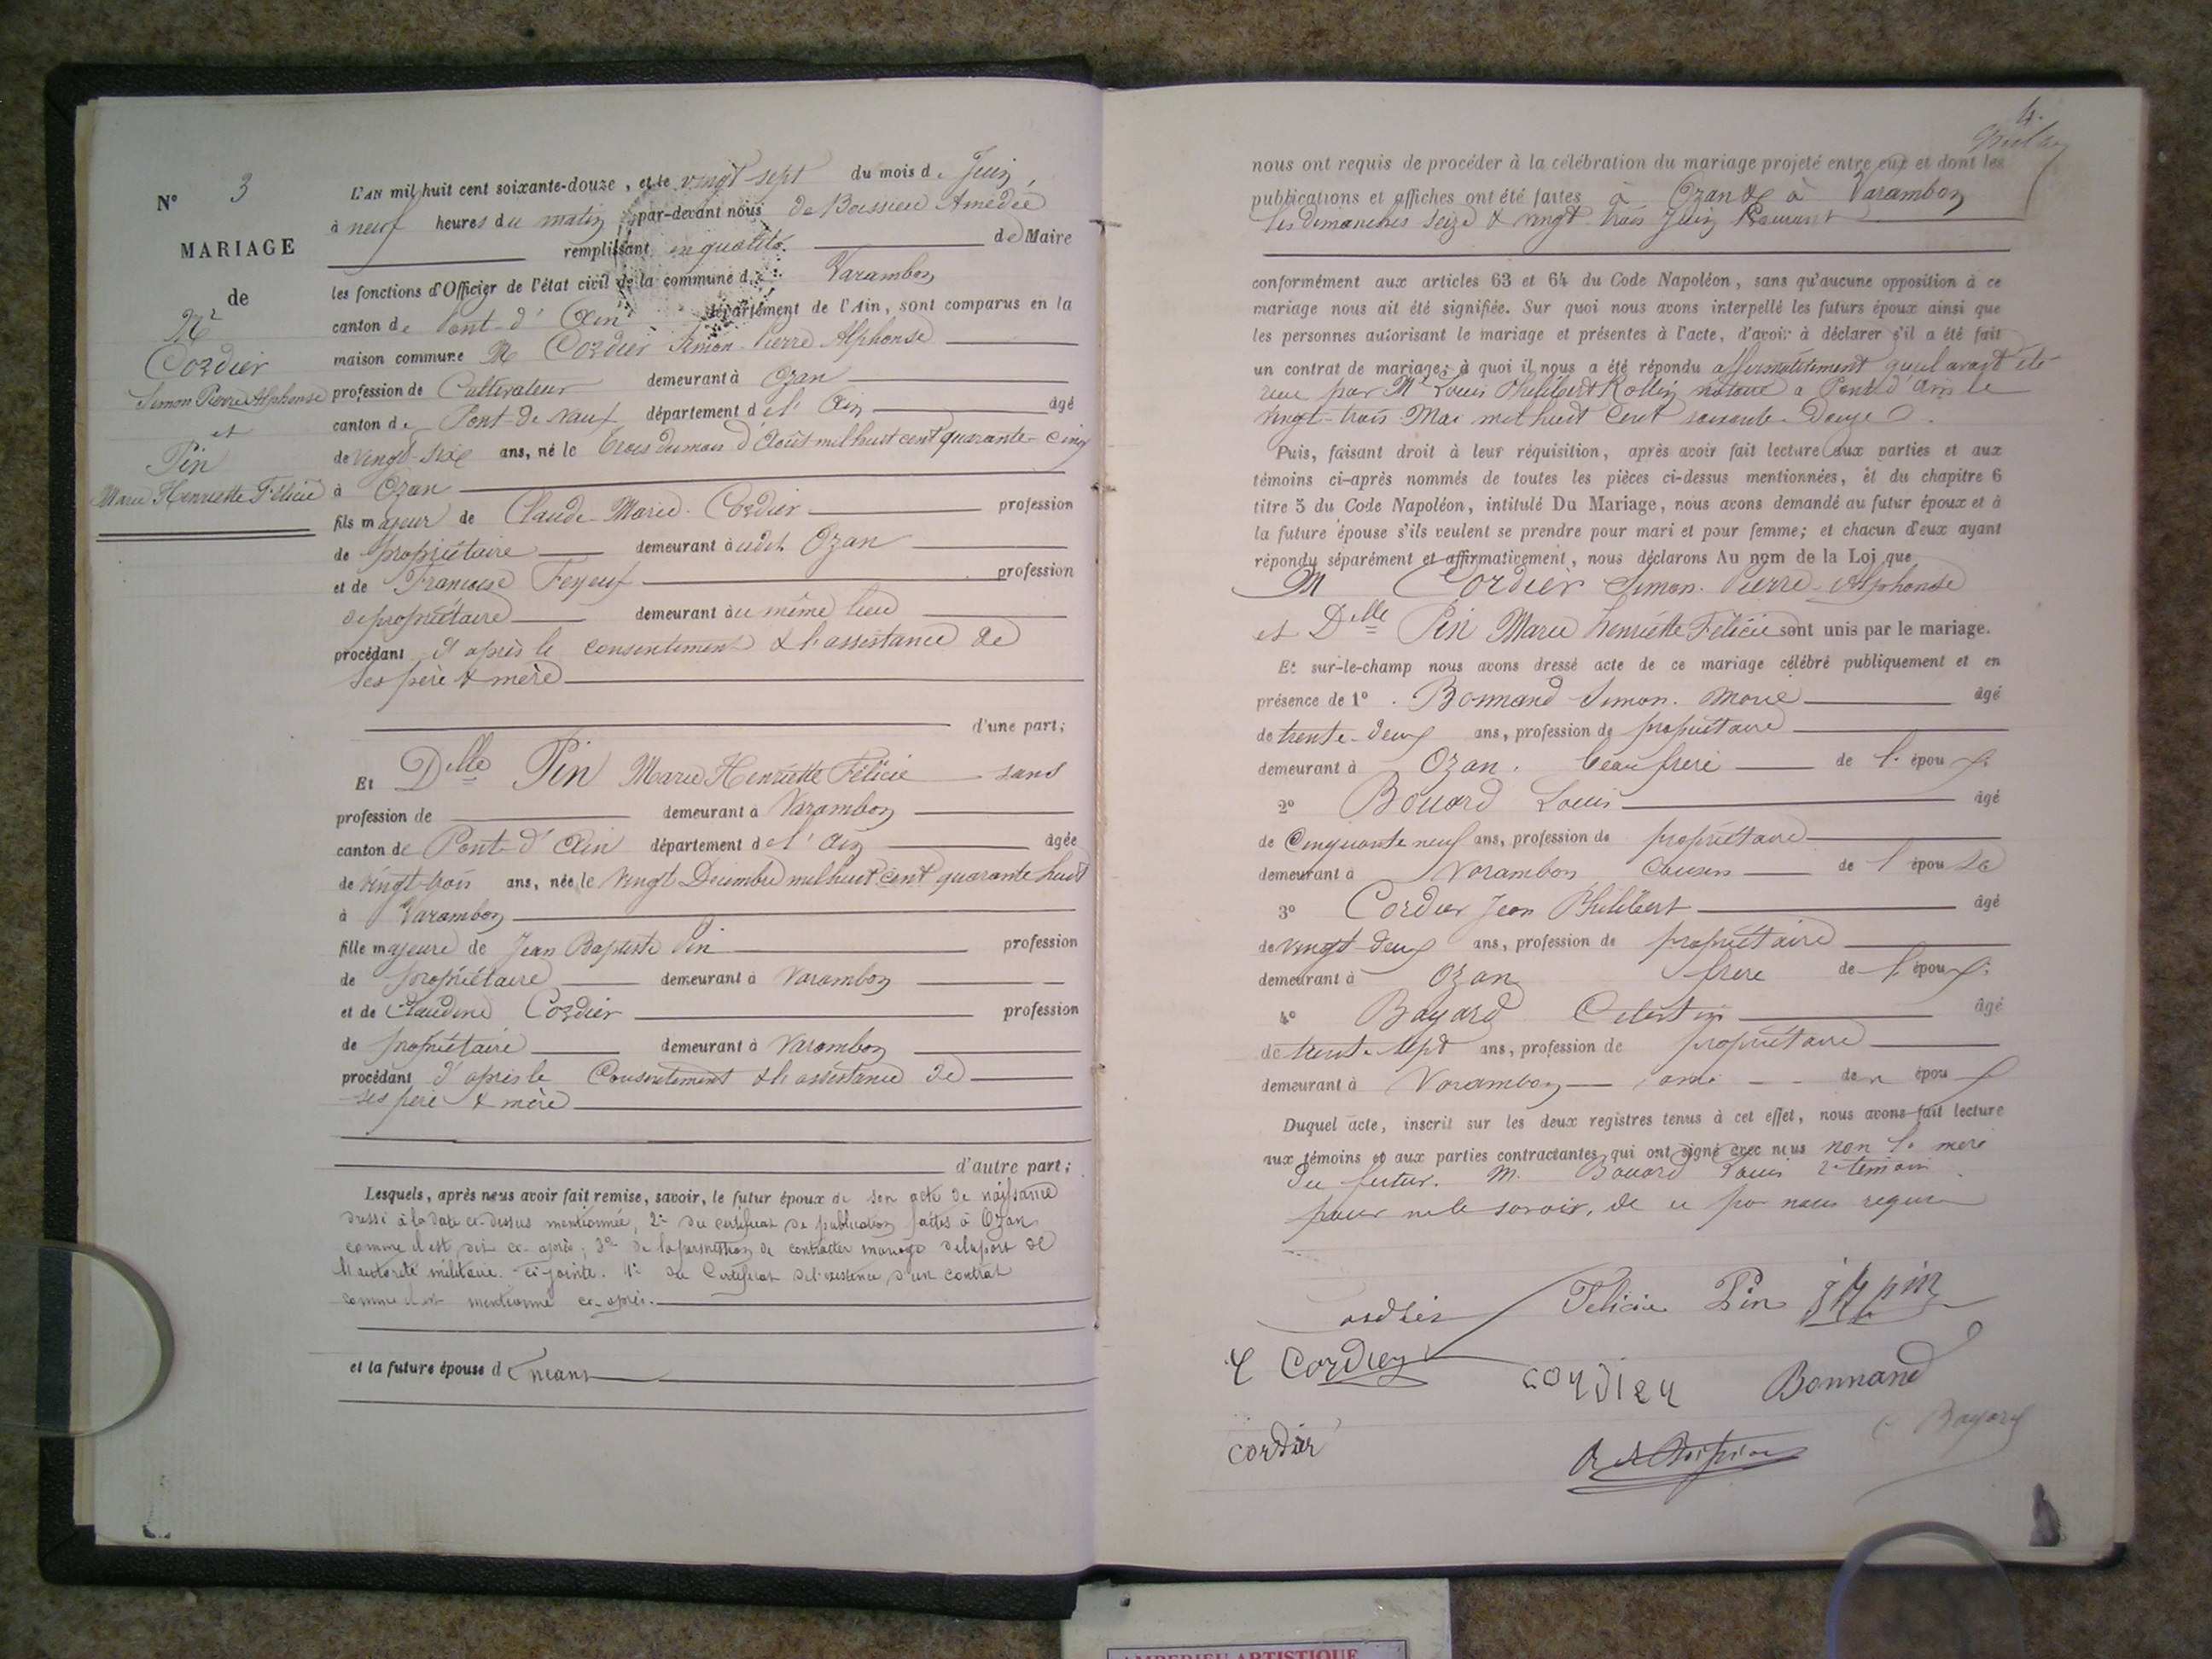 N° 3
MARIAGE
de
Mr
Cordier
Simon Pierre Alphonse
et
Pin
Marie Henriette Félicie
L'AN mil huit cent soixante-douze, et le vingt sept du mois de Juin,
à neuf heures du matin par-devant nous de Boissieu Amédée
remplissant en qualité de Maire
les fonctions d'Officier de l'état civil de la commune de Varambon
canton de Pont-d'Ain département de l'Ain, sont comparus en la
maison commune M Cordier Simon Pierre Alphonse
profession de Cultivateur demeurant à Ozan
canton de Pont-de-Vaux département de l'Ain âgé
de vingt-six ans, né le trois du mois d'Août mil huit cent quarante-cinq
à Ozan
fils majeur de Claude Marie Cordier profession
de propriétaire demeurant audit Ozan
et de Francoise Feyeux profession
de propriétaire demeurant au même lieu
procédant d'après le consentement & l'assistance de
ses père & mère
d'une part;
Et Delle Pin Marie Henriette Félicie sans
profession de demeurant à Varambon
canton de Pont-d'Ain département de l'Ain âgée
de vingt-trois ans, née le vingt Décembre mil huit cent quarante huit
à Varambon
fille majeure de Jean Baptiste Pin profession
de propriétaire demeurant à Varambon
et de Claudine Cordier profession
de propriétaire demeurant à Varambon
procédant d'après le Consentement & l'assistance de
ses père & mère
d'autre part;
Lesquels, après nous avoir fait remise, savoir, le futur époux de son acte de naissance
dressé à la date ci-dessus mentionnée, 2° du certificat de publication faites à Ozan
comme il est dit ci-après; 3° de la permission de contracter mariage de la part de
l'autorité militaire ci-jointe. 4° du Certificat de l'existence d'un contrat
comme il est mentionné ci-après.
et la future épouse de néant
4.
nous ont requis de procéder à la célébration du mariage projeté entre eux et dont les
publications et affiches ont été faites à Ozan & à Varambon
les dimanches seize & vingt trois Juin Courant
conformément aux articles 63 et 64 du Code Napoléon, sans qu'aucune opposition à ce
mariage nous ait été signifiée. Sur quoi nous avons interpellé les futurs époux ainsi que
les personnes autorisant le mariage et présentes à l'acte, d'avoir à déclarer s'il a été fait
un contrat de mariage; à quoi il nous a été répondu affirmativement qu'il avait été
reçu par Me Louis Philibert Rollin notaire à Pont d'Ain le
vingt-trois Mai mil huit Cent soixante-Douze.
Puis, faisant droit à leur réquisition, après avoir fait lecture aux parties et aux
témoins ci-après nommés de toutes les pièces ci-dessus mentionnées, et du chapitre 6
titre 5 du Code Napoléon, intitulé Du Mariage, nous avons demandé au futur époux et à
la future épouse s'ils veulent se prendre pour mari et pour femme; et chacun d'eux ayant
répondu séparément et affirmativement, nous déclarons Au nom de la Loi que
M Cordier Simon Pierre Alphonse
et Delle Pin Marie Henriette Félicie sont unis par le mariage.
Et sur-le-champ nous avons dressé acte de ce mariage célébré publiquement et en
présence de 1° Bonnand Simon Marie âgé
de trente-deux ans, profession de propriétaire
demeurant à Ozan. beau frère de l'époux.
2° Bouard Louis âgé
de Cinquante neuf ans, profession de propriétaire
demeurant à Varambon Cousin de l'épouse
3° Cordier Jean Philibert âgé
de vingt-deux ans, profession de propriétaire
demeurant à Ozan frère de l'époux.
4° Bayard Celestin âgé
de trente-sept ans, profession de propriétaire
demeurant à Varambon ami des époux
Duquel acte, inscrit sur les deux registres tenus à cet effet, nous avons fait lecture
aux témoins et aux parties contractantes qui ont signé avec nous non la mère
du futur. M. Bouard Louis 2e témoin
pour ne le savoir, de ce par nous requis
Cordier Félicie Pin J B pin
C Cordier cordier Bonnand
cordier C Bayard